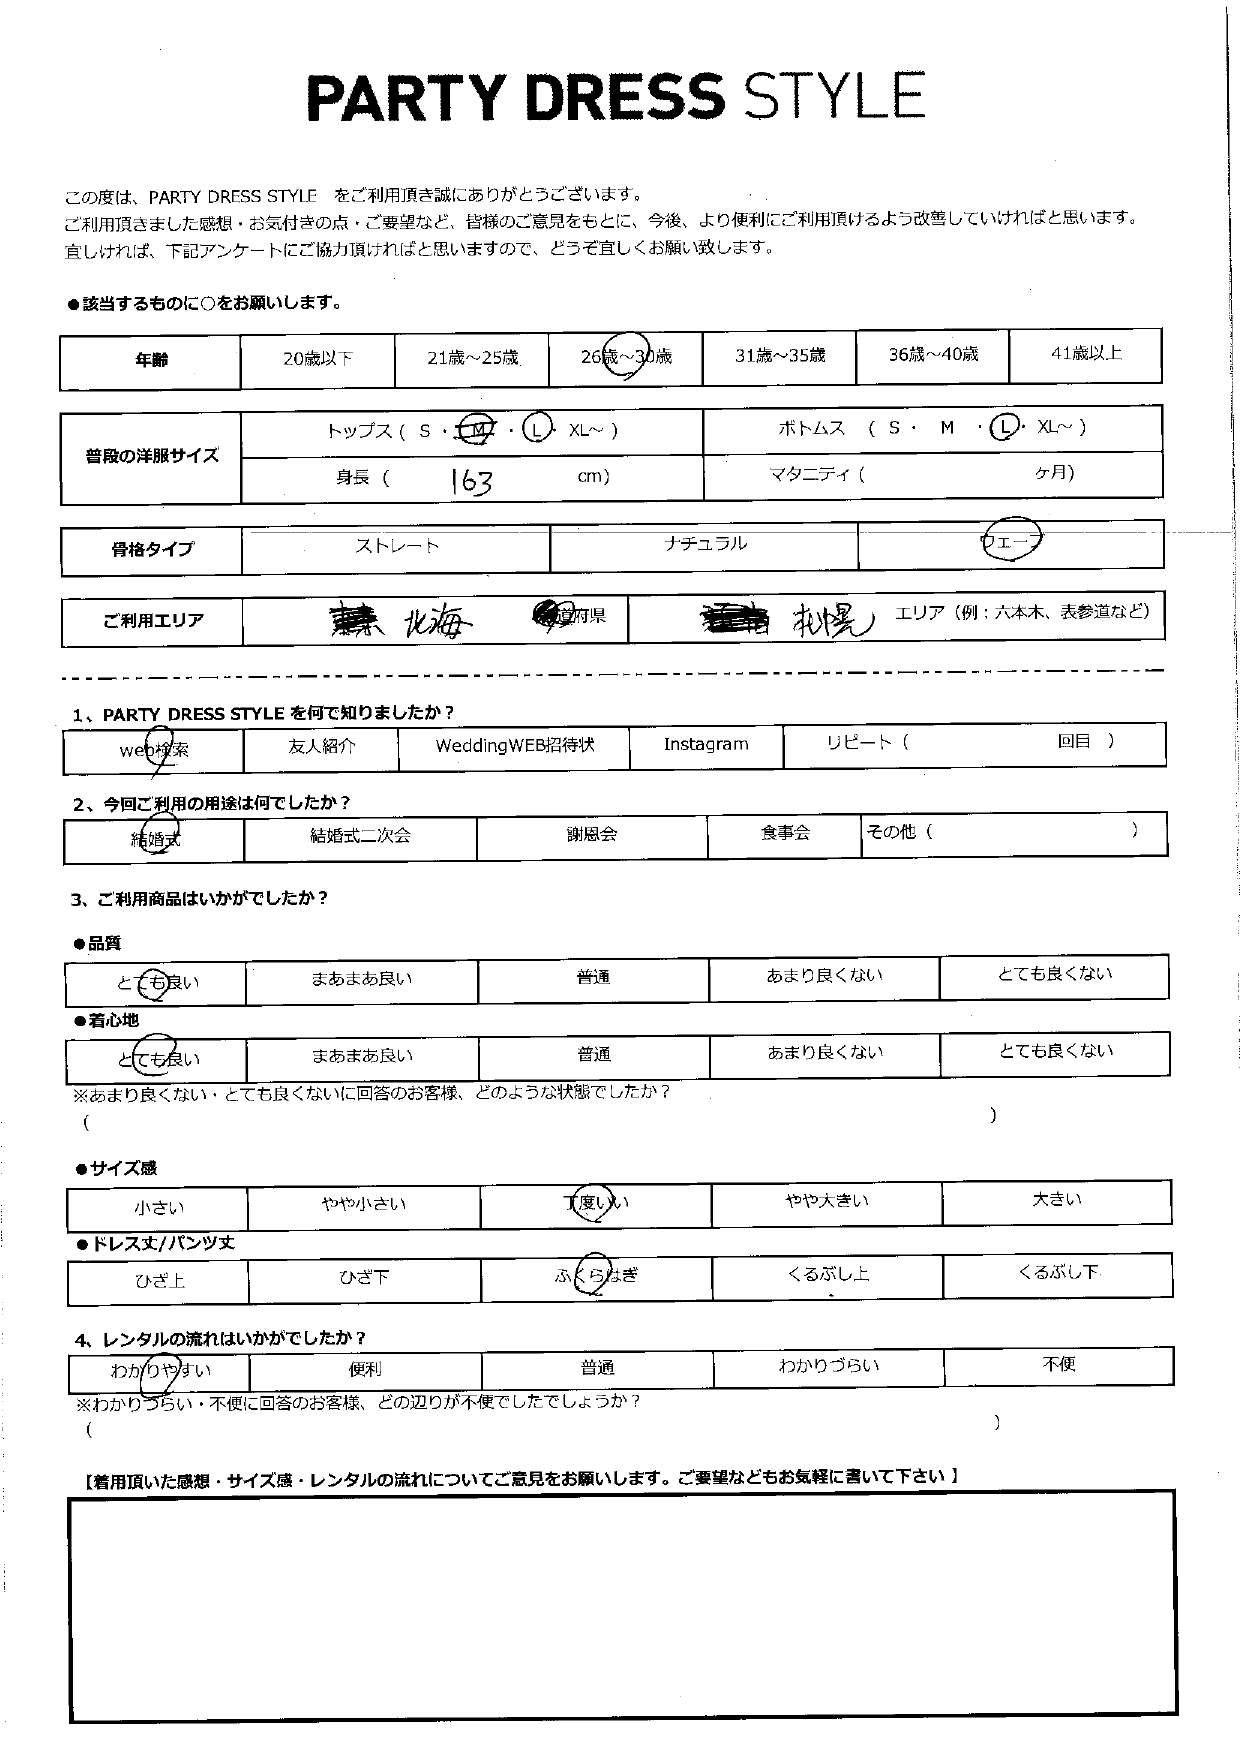 PARTY DRESS STYLE
この度は、PARTY DRESS STYLE をご利用頂き誠にありがとうございます。
ご利用頂きました感想・お気付きの点・ご要望など、皆様のご意見をもとに、今後、より便利にご利用頂けるよう改善していければと思います。
宜しければ、下記アンケートにご協力頂ければと思いますので、どうぞ宜しくお願い致します。
●該当するものに○をお願いします。
年齢 20歳以下 21歳～25歳 26歳～30歳 31歳～35歳 36歳～40歳 41歳以上
普段の洋服サイズ トップス ( S ・ M ・ L ・ XL～ ) ボトムス ( S ・ M ・ L ・ XL～ )
身長 ( 163 cm) マタニティ ( ヶ月)
骨格タイプ ストレート ナチュラル ウェーブ
ご利用エリア 北海 道府県 札幌 エリア（例；六本木、表参道など）
1、PARTY DRESS STYLE を何で知りましたか？
web検索 友人紹介 WeddingWEB招待状 Instagram リピート ( 回目 )
2、今回ご利用の用途は何でしたか？
結婚式 結婚式二次会 謝恩会 食事会 その他 ( )
3、ご利用商品はいかがでしたか？
●品質
とても良い まあまあ良い 普通 あまり良くない とても良くない
●着心地
とても良い まあまあ良い 普通 あまり良くない とても良くない
※あまり良くない・とても良くないに回答のお客様、どのような状態でしたか？
( )
●サイズ感
小さい やや小さい 丁度いい やや大きい 大きい
●ドレス丈/パンツ丈
ひざ上 ひざ下 ふくらはぎ くるぶし上 くるぶし下
4、レンタルの流れはいかがでしたか？
わかりやすい 便利 普通 わかりづらい 不便
※わかりづらい・不便に回答のお客様、どの辺りが不便でしたでしょうか？
( )
【着用頂いた感想・サイズ感・レンタルの流れについてご意見をお願いします。ご要望などもお気軽に書いて下さい 】